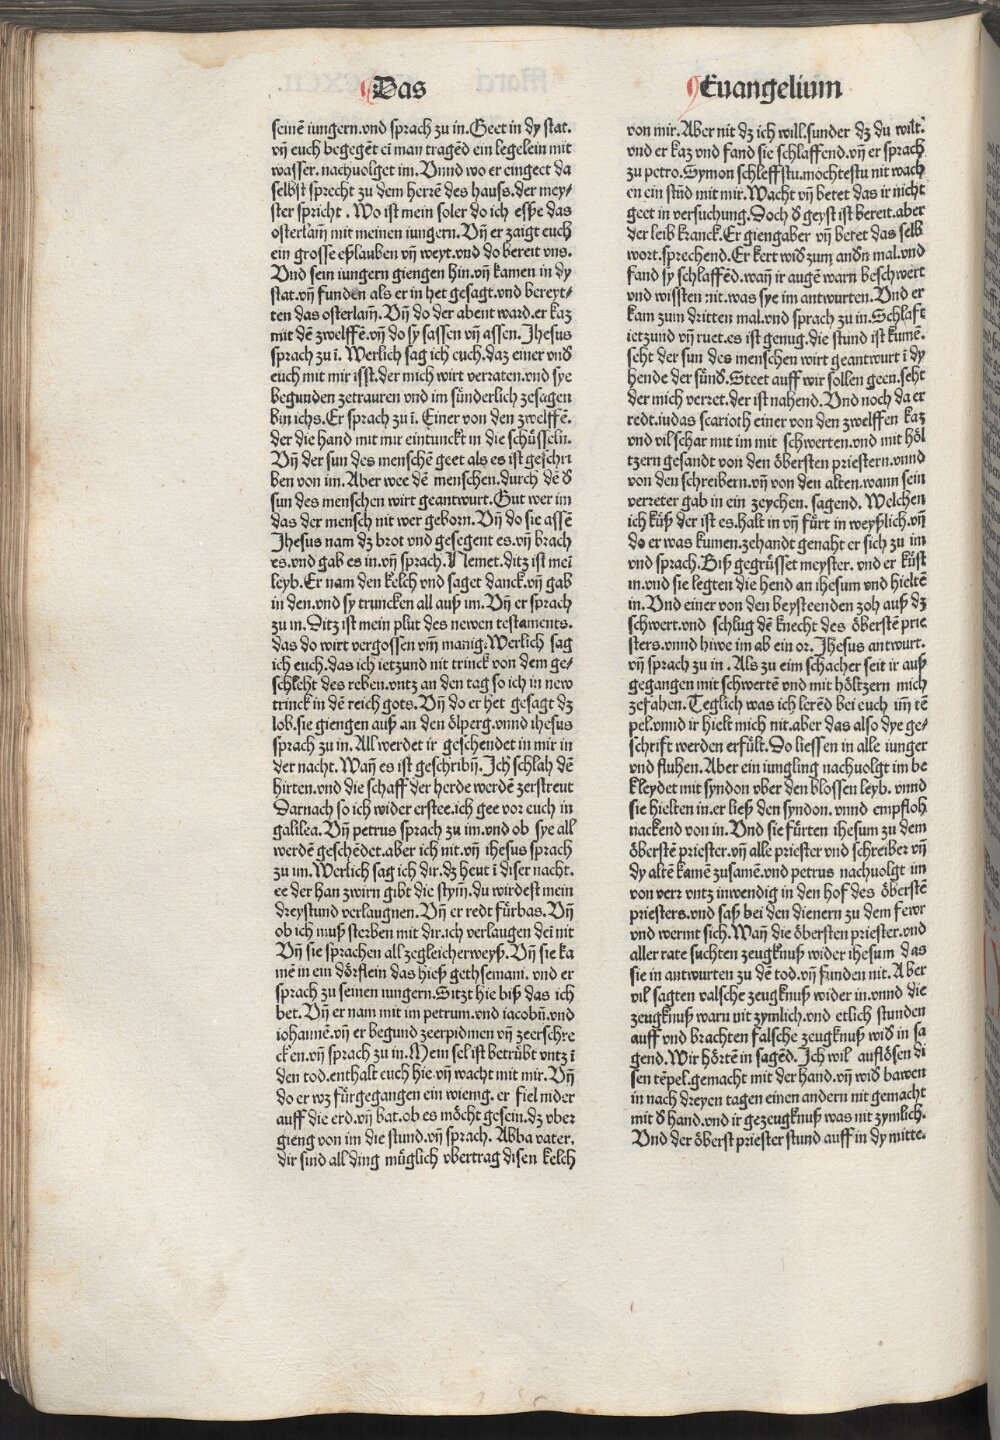 Das
Euangelium
seinē iungern.vnd sprach zu in.Geet in dy stat.
vñ euch begegēt eī man tragēd ein legelein mit
wasser. nachuolget im. Vnnd wo er eingeet da
selbst sprecht zu dem herrē des hauss.der mey⸗
ster spricht . Wo ist mein soler do ich eßse das
osterlam̄ mit meinen iungern. Vñ er zaigt euch
ein grosse eßlauben vñ weyt.vnd do bereit vns.
Vnd sein iungern giengen hin.vñ kamen in dy
stat.vñ funden als er in het gesagt.vnd bereyt⸗
ten das osterlam̄. Vñ do der abent ward.er kaz
mit dē zwelffē.vñ do sy sassen vñ assen. Jhesus
sprach zu ī. Werlich sag ich euch.daz einer vnď
euch mit mir isst.der mich wirt verraten.vnd sye
begunden zetrauren vnd im sünderlich zesagen
bin ichs.Er sprach zu ī. Einer von den zwelffē.
der die hand mit mir eintunckt in die schüsseln.
Vñ der sun des menschē geet als es ist geschri
ben von im. Aber wee dē menschen.durch dē ď
sun des menschen wirt geantwurt. Gut wer im
das der mensch nit wer geborn. Vñ do sie assē
Jhesus nam dz brot vnd gesegent es.vñ brach
es.vnd gab es in.vñ sprach. Nemet.ditz ist meī
leyb. Er nam den kelch vnd saget danck.vñ gab
in den.vnd sy truncken all auß im. Vñ er sprach
zu in. Ditz ist mein plut des newen testaments.
das do wirt vergossen vm̄ manig. Werlich sag
ich euch.das ich ietzund nit trinck von dem ge⸗
schlecht des reben.vntz an den tag so ich in new
trinck in dē reich gots. Vñ do er het gesagt dz
lob.sie giengen auß an den ölperg.vnnd ihesus
sprach zu in. All werdet ir geschendet in mir in
der nacht. Wañ es ist geschribñ. Ich schlah dē
hirten.vnd die schaff der herde werdē zerstreut
Darnach so ich wider erstee.ich gee vor euch in
galilea. Vñ petrus sprach zu im.vnd ob sye all
werdē geschēdet.aber ich nit.vñ ihesus sprach
zu im. Werlich sag ich dir.dz heut ī diser nacht.
ee der han zwirn gibt die stym̄.du wirdest mein
dreystund verlaugnen. Vñ er redt fürbas. Vñ
ob ich muß sterben mit dir.ich verlaugen deī nit
Vñ sie sprachen all zegleicherweyß. Vñ sie ka
mē in ein dörflein das hieß gethsemani. vnd er
sprach zu seinen iungern.Sitzt hie biß das ich
bet. Vñ er nam mit im petrum.vnd iacobñ.vnd
iohannē.vñ er begund zeerpidmen vñ zeerschre
cken.vñ sprach zu in. Mein sel ist betrübt vntz ī
den tod.enthalt euch hie.vñ wacht mit mir. Vñ
do er wz fürgegangen ein wienig. er fiel nider
auff die erd.vñ bat.ob es möcht gesein.dz vber
gieng von im die stund.vñ sprach. Abba vater.
dir sind all ding müglich vbertrag disen kelch
von mir. Aber nit dz ich will.sunder dz du wilt.
vnd er kaz vnd fand sie schlaffend.vñ er sprach
zu petro.Symon schleffstu.möchtestu nit wach
en ein stūd mit mir. Wacht vñ betet das ir nicht
geet in versuchung.Doch ď geyst ist bereit.aber
der leib kranck. Er gieng aber vñ betet das selb
wort.sprechend. Er kert wiď zum andñ mal.vnd
fand sy schlaffēd.wañ ir augē warn beschwert
vnd wissten nit.was sye im antwurten. Vnd er
kam zum dritten mal.vnd sprach zu in.Schlaft
ietzund vñ ruet.es ist genug.die stund ist kumē.
seht der sun des menschen wirt geantwurt ī dy
hende der sünď. Steet auff wir sollen geen.seht
der mich verret.der ist nahend. Vnd noch da er
redt.iudas scarioth einer von den zwelffen kaz
vnd vil schar mit im mit schwerten.vnd mit höl
tzern gesandt von den öbersten priestern.vnnd
von den schreibern.vñ von den alten.wann sein
verreter gab in ein zeychen. sagend. Welchen
ich küß der ist es.halt in vñ fürt in weyßlich.vñ
do er was kumen.zehandt genaht er sich zu im
vnd sprach. Biß gegrüsset meyster. vnd er küst
in.vnd sie legten die hend an ihesum vnd hieltē
in. Vnd einer von den beysteenden zoh auß dz
schwert.vnd schlug dē knecht des öberstē prie
sters.vnnd hiwe im ab ein or. Jhesus antwurt.
vñ sprach zu in . Als zu eim schacher seit ir auß
gegangen mit schwertē vnd mit höltzern mich
zefahen. Teglich was ich lerēd bei euch im̄ tē
pel.vnnd ir hielt mich nit.aber das also dye ge⸗
schrift werden erfült. Do liessen in alle iunger
vnd fluhen. Aber ein iungling nachuolgt im be
kleydet mit syndon vber den blossen leyb. vnnd
sie hielten in.er ließ den syndon. vnnd empfloh
nackend von in. Vnd sie fürten ihesum zu dem
öberstē priester.vñ alle priester vnd schreiber vñ
dy altē kamē zusamē.vnd petrus nachuolgt im
von verr vntz inwendig in den hof des öberstē
priesters.vnd saß bei den dienern zu dem fewr
vnd wermt sich. Wañ die öbersten priester.vnd
aller rate suchten zeugknuß wider ihesum das
sie in antwurten zu dē tod.vñ funden nit. Aber
vil sagten valsche zeugknuß wider in.vnnd die
zeugknuß warn nit zymlich.vnd etlich stunden
auff vnd brachten falsche zeugknuß wiď in sa
gend. Wir hörtē in sagēd. Ich wil auflösen di
sen tēpel.gemacht mit der hand.vñ wiď bawen
in nach dreyen tagen einen andern nit gemacht
mit ď hand.vnd ir gezeugknuß was nit zymlich.
Vnd der öberst priester stund auff in dy mitte.